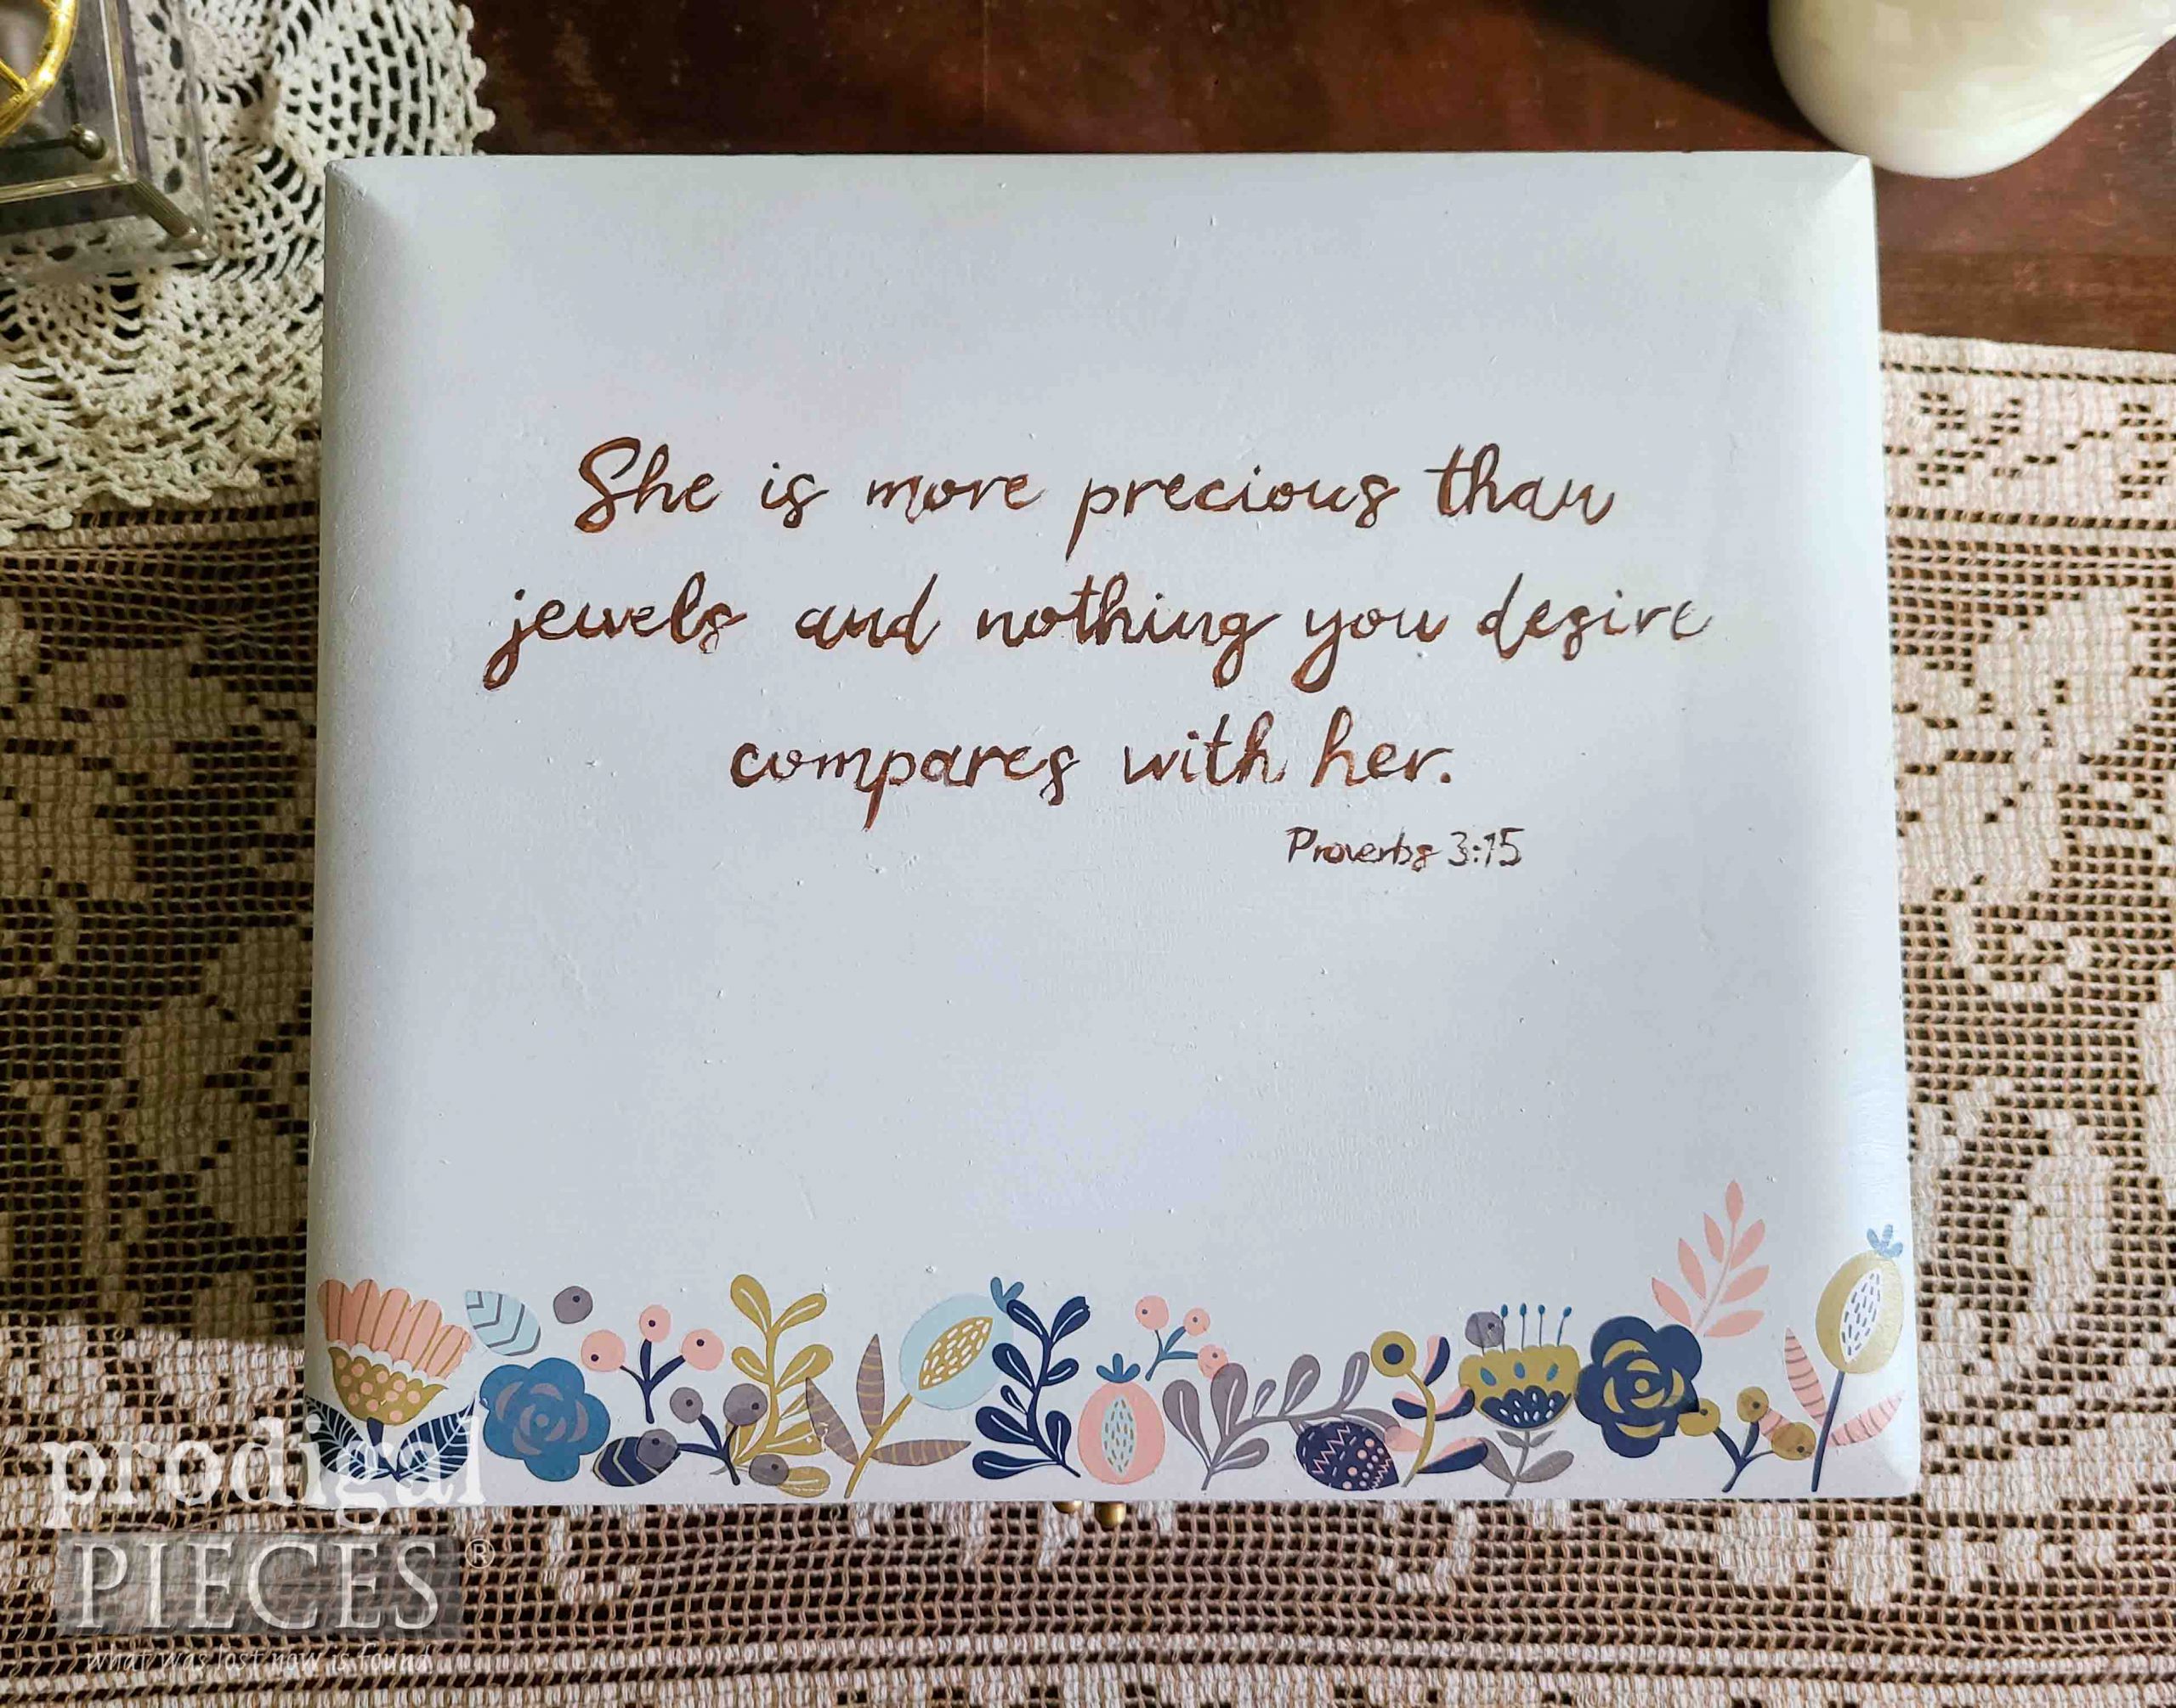 She is more precious than
jewels and nothing you desire
compares with her.
Proverbs 3:15
prodigal
PIECES®
what was lost now is found